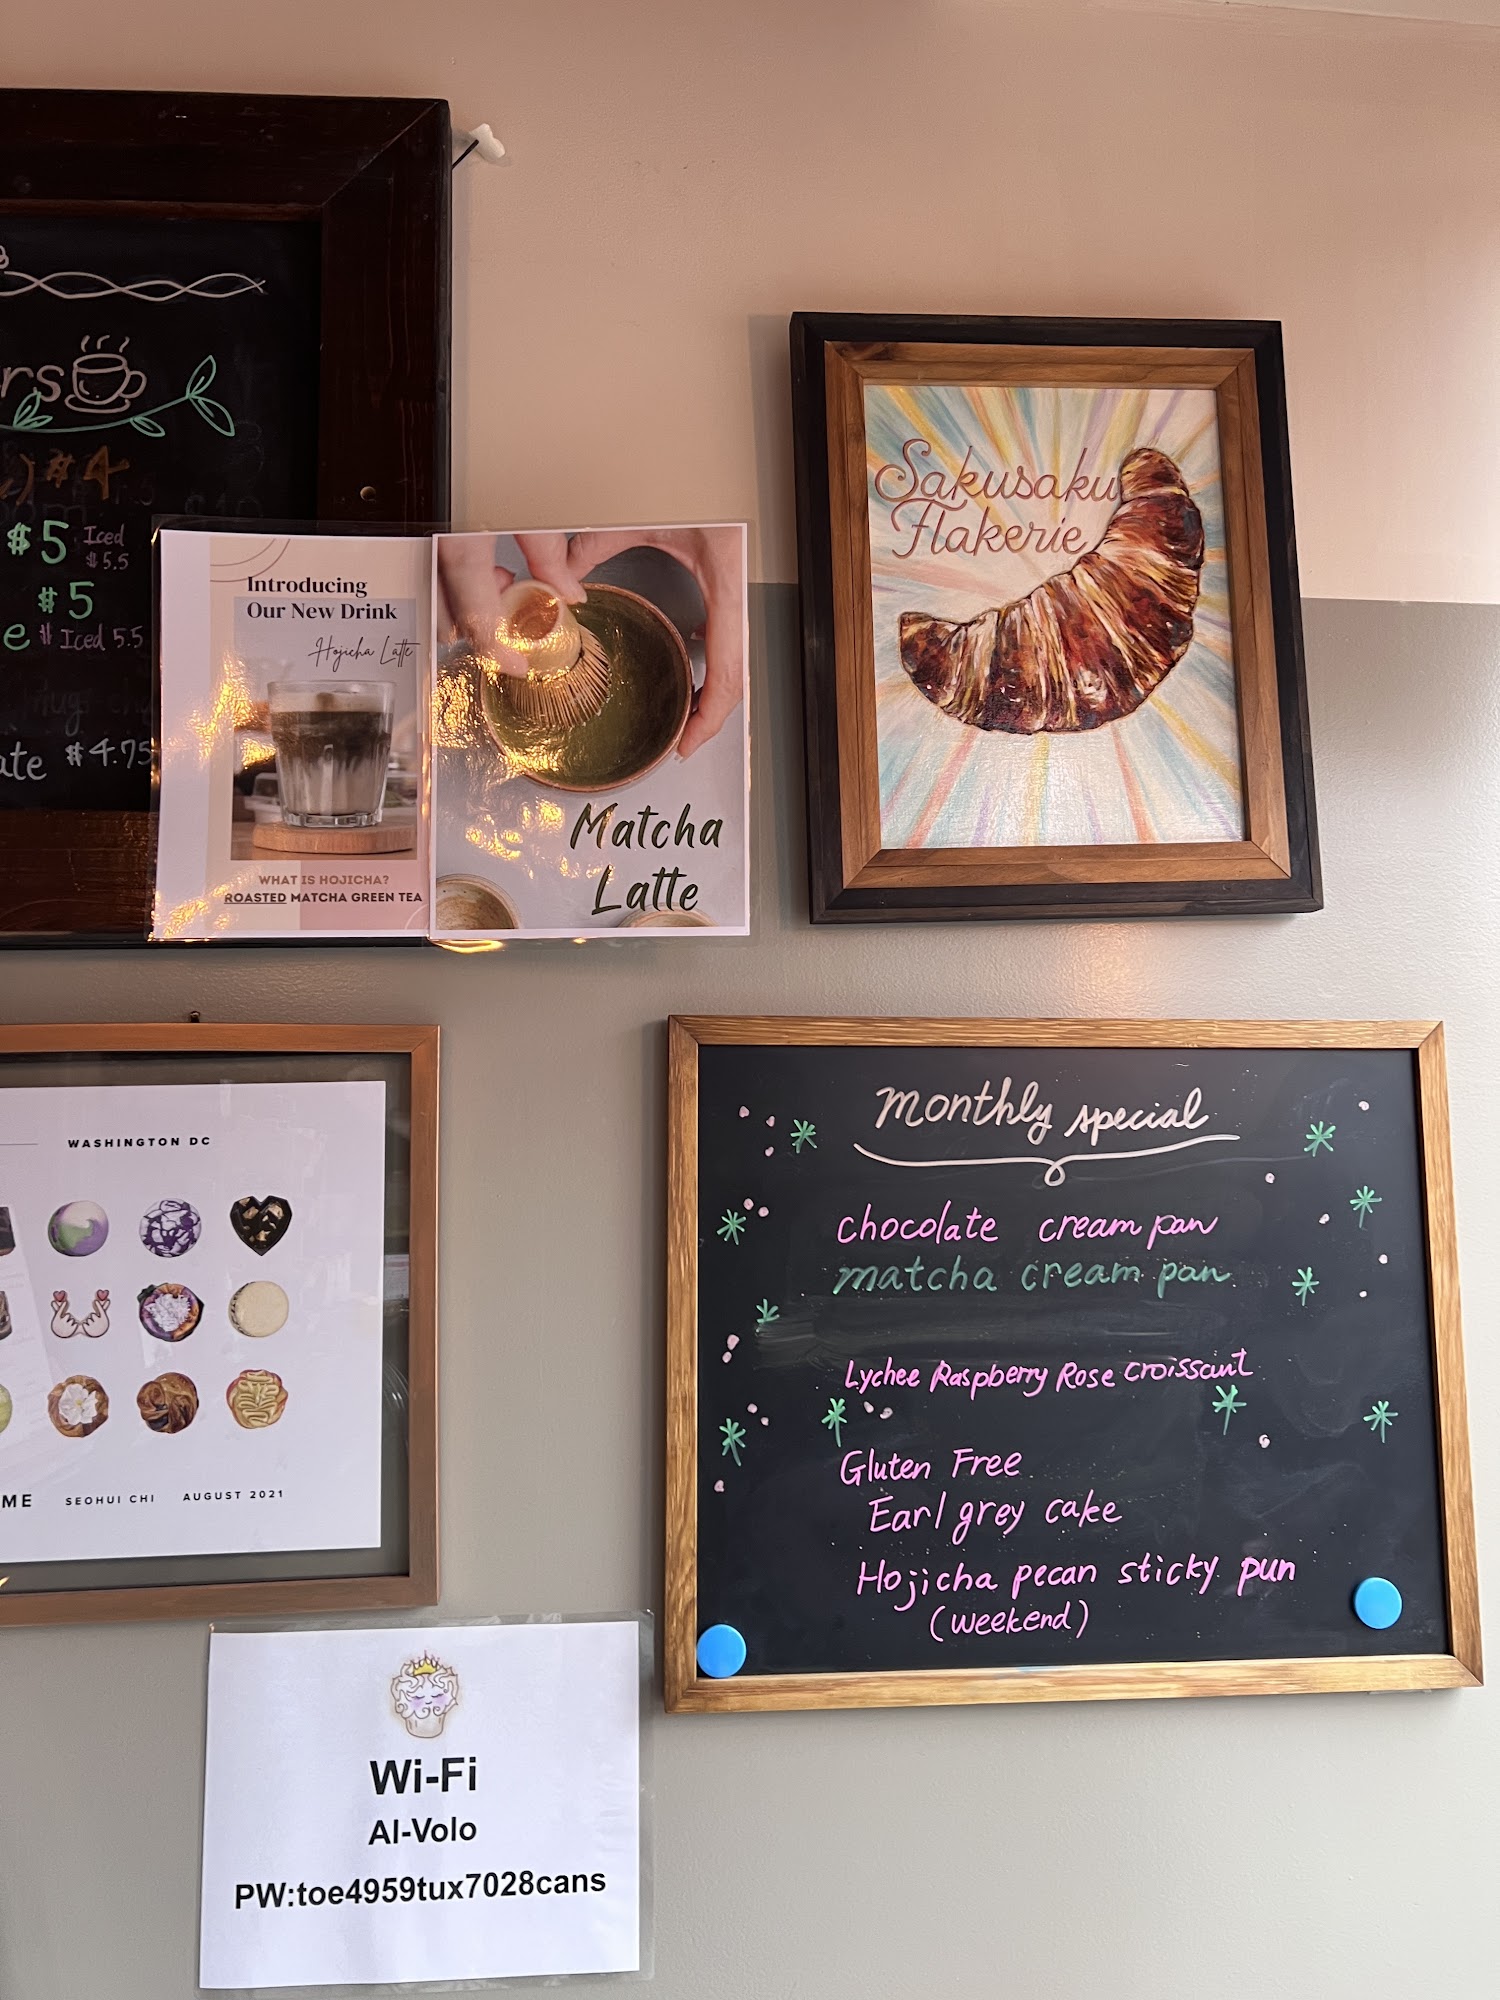 $4
$5 Iced
$5.5
$5
Iced 5.5
$4.75
Introducing
Our New Drink
Hojicha Latte
WHAT IS HOJICHA?
ROASTED MATCHA GREEN TEA
Matcha
Latte
Sakusaku
Flakerie
WASHINGTON DC
SEOHUI CHI AUGUST 2021
monthly special
chocolate cream pan
matcha cream pan
Lychee Raspberry Rose Croissant
Gluten Free
Earl grey cake
Hojicha pecan sticky pun
(weekend)
Wi-Fi
Al-Volo
PW:toe4959tux7028cans